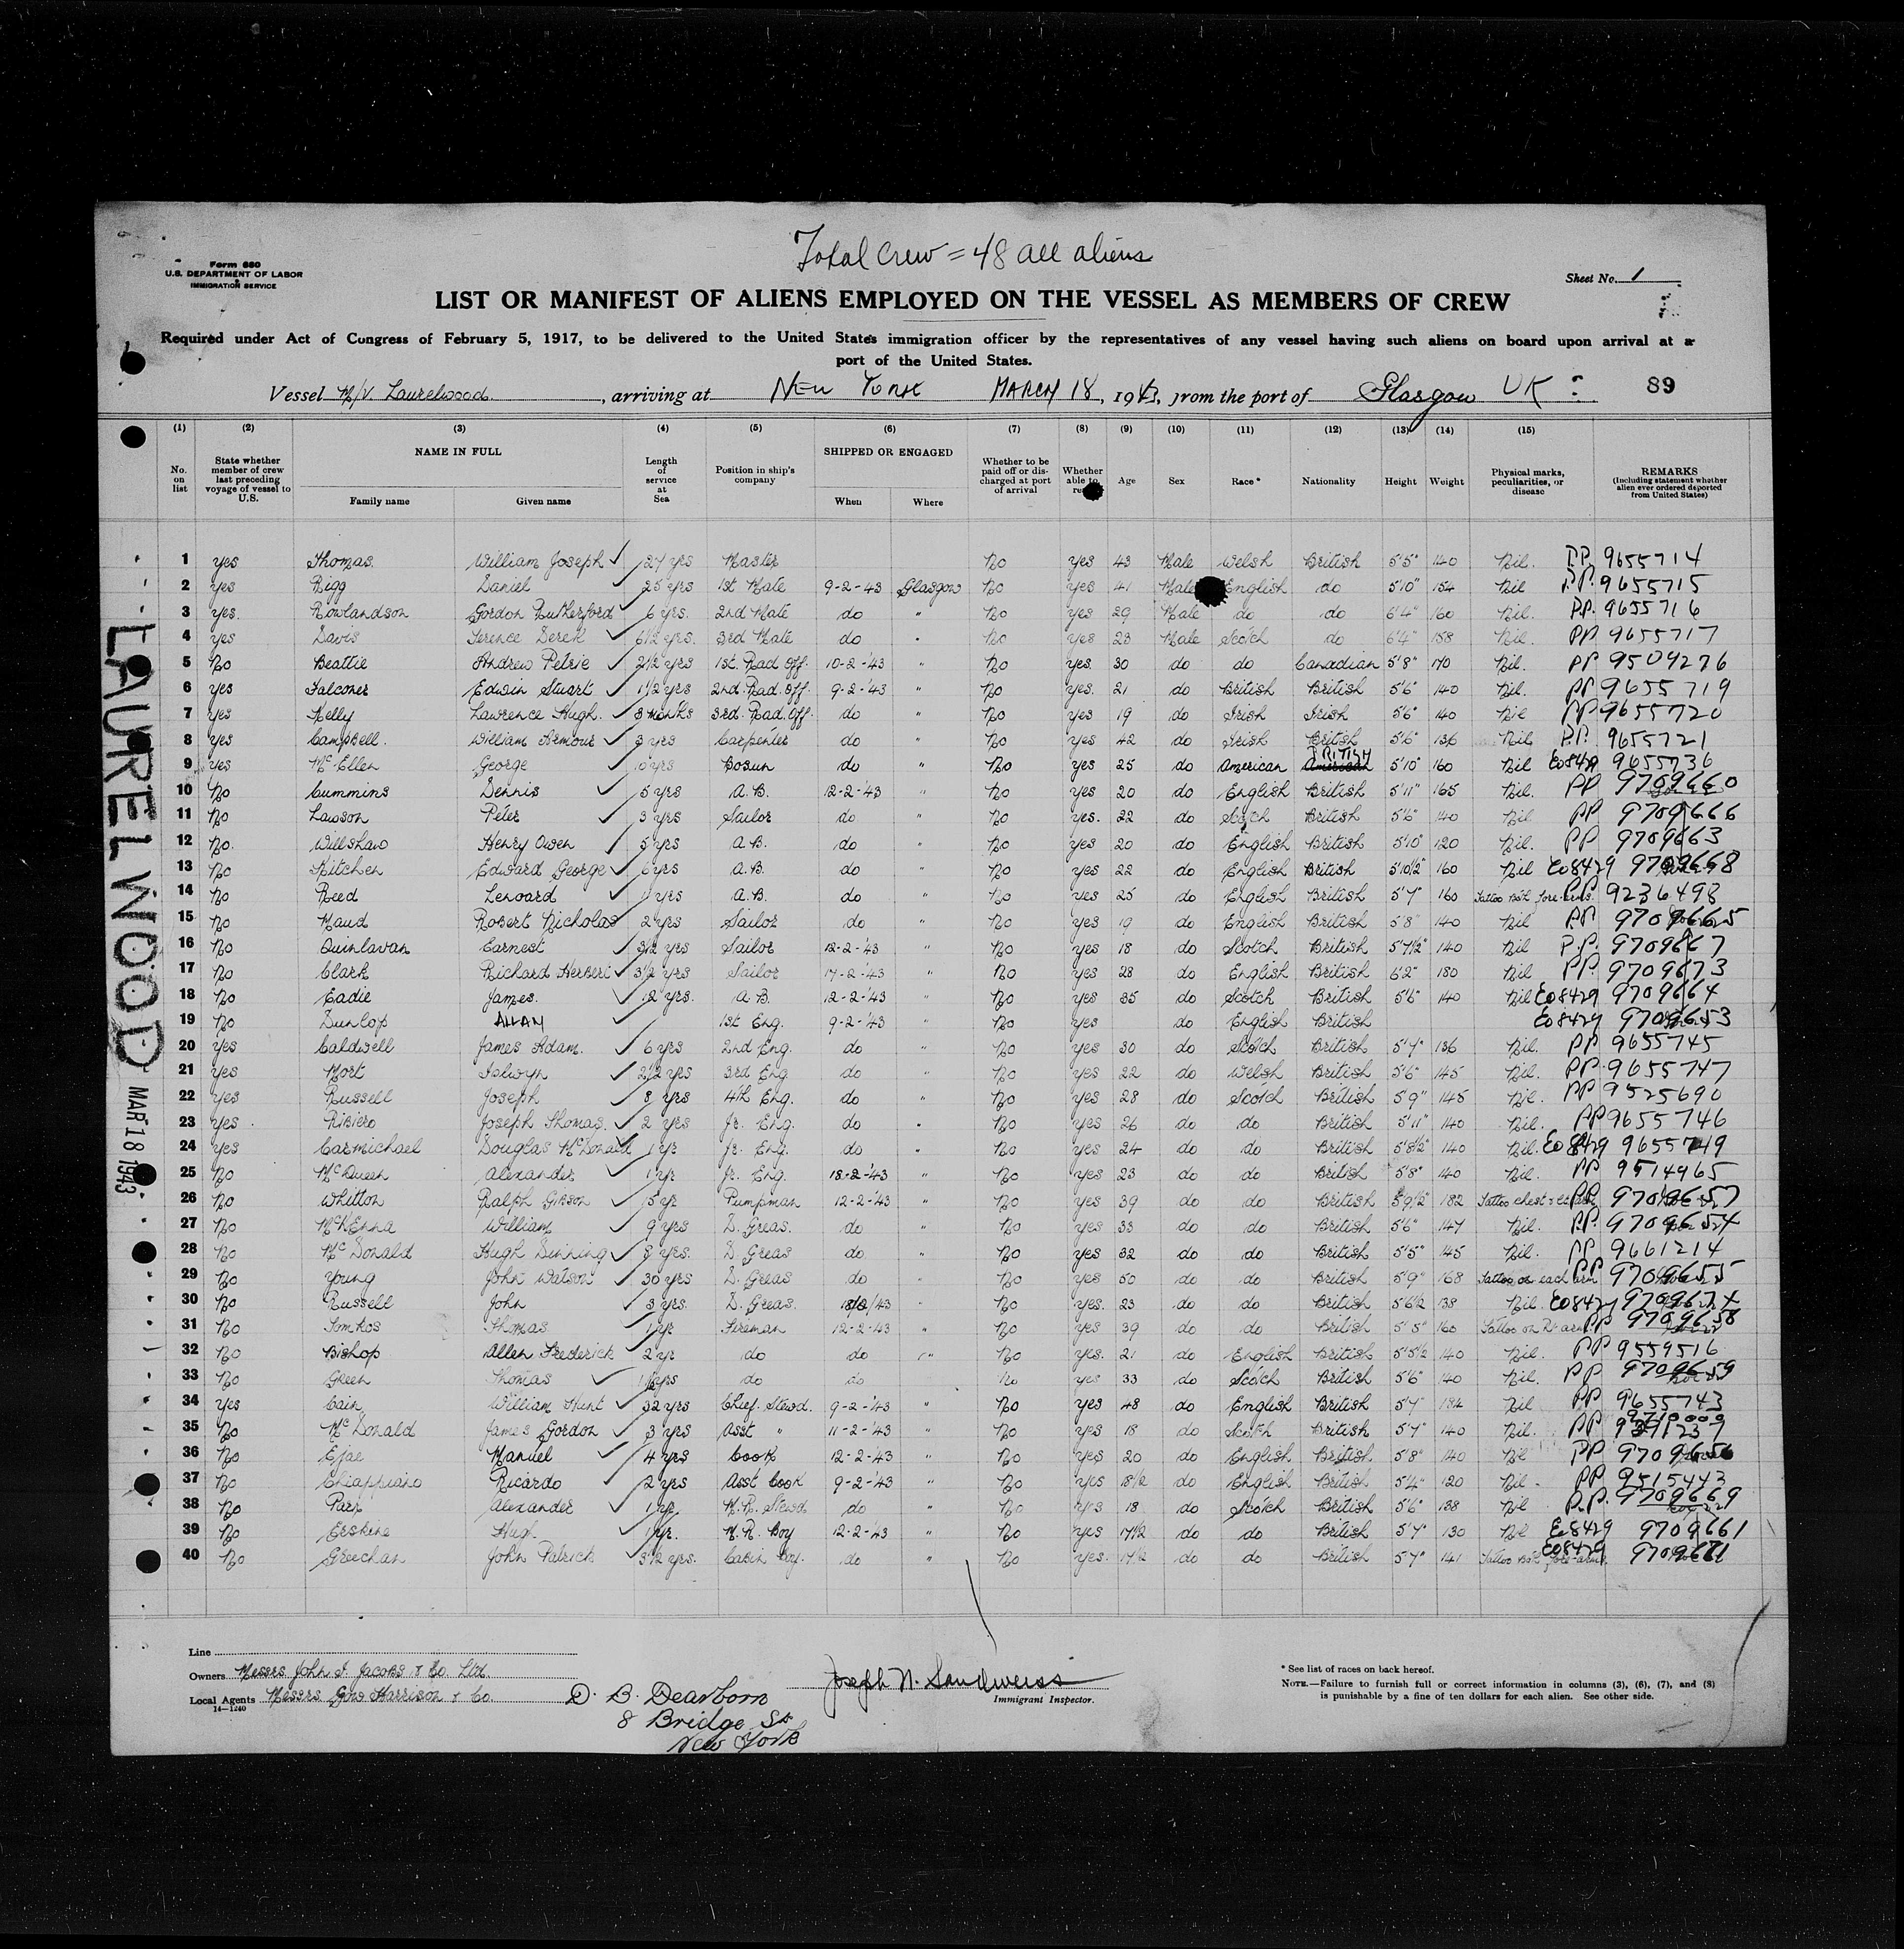 Total Crew = 48 all aliens
Form 680
U.S. DEPARTMENT OF LABOR
IMMIGRATION SERVICE
Sheet No. 1
LIST OR MANIFEST OF ALIENS EMPLOYED ON THE VESSEL AS MEMBERS OF CREW
Required under Act of Congress of February 5, 1917, to be delivered to the United States immigration officer by the representatives of any vessel having such aliens on board upon arrival at a
port of the United States.
Vessel M/V. Laurelwood, arriving at NEW YORK MARCH 18, 1943, from the port of Glasgow UK 89
(1) (2) (3) (4) (5) (6) (7) (8) (9) (10) (11) (12) (13) (14) (15)
No. on list State whether member of crew last preceding voyage of vessel to U.S. NAME IN FULL Family name Given name Length of service at Sea Position in ship's company SHIPPED OR ENGAGED When Where Whether to be paid off or discharged at port of arrival Whether able to Age Sex Race* Nationality Height Weight Physical marks, peculiarities, or disease REMARKS (Including statement whether alien ever ordered deported from United States)
1 yes Thomas. William Joseph 27 yrs Master No yes 43 Male Welsh British 5'5" 140 Nil. P.P. 9655714
2 yes Rigg Daniel 25 yrs 1st Mate 9-2-43 Glasgow No yes 41 Male English do 5'10" 154 Nil P.P. 9655715
3 yes. Rowlandson Gordon Rutherford 6 yrs. 2nd Mate do " No yes 29 Male do do 6'4" 160 Nil. P.P. 9655716
4 yes Davis Terence Derek 6½ yrs. 3rd Mate do " No yes 23 Male Scotch do 6'4" 158 Nil. PP 9655717
5 No Beattie Andrew Petrie 2½ yrs 1st. Rad. Off. 10-2-'43 " No yes. 30 do do Canadian 5'8" 170 Nil. PP 9504276
6 yes Falconer Edwin Stuart 1½ yrs 2nd. Rad. Off. 9-2-'43 " No yes. 21 do British British 5'6" 140 Nil. PP 9655719
7 yes Kelly Lawrence Hugh. 3 months 3rd. Rad. Off. do " No yes 19 do Irish Irish 5'6" 140 Nil PP 9655720
8 yes Campbell. William Armour 9 yrs Carpenter do " No yes 42 do Irish British 5'6" 136 Nil P.P. 9655721
9 yes McEllen George yrs Bosun do " No yes 25 do American BRITISH American 5'10" 160 Nil Eo8429 9655736
10 No Cummins Dennis 5 yrs A.B. 12-2-'43 " No yes 20 do English British 5'11" 165 Nil. PP 9709660
11 No Lawson Peter 3 yrs Sailor do " No yes. 22 do Scotch British 5'6" 140 Nil PP 9709666
12 No. Willshaw Henry Owen 5 yrs A.B. do " No yes 20 do English British 5'10" 120 Nil. PP 9709663
13 No Kitchen Edward George yrs A.B. do " No yes 22 do English British 5'10½" 160 Nil Eo8429 9709668
14 No Reed Lenoard yrs A.B. do " No yes 25 do English British 5'7" 160 Tattoo both fore-arms. PP 9236498
15 No Maud Robert Nicholas 2 yrs Sailor do " No yes 19 do English British 5'8" 140 Nil PP. 9709665
16 No Quinlavan Earnest 3½ yrs Sailor 12-2-'43 " No yes 18 do Scotch British 5'7½" 140 Nil P.P. 9709667
17 No Clark Richard Herbert 3½ yrs Sailor 17-2-'43 " No yes 28 do English British 6'2" 180 Nil PP. 9709673
18 No Eadie James. 12 yrs. A.B. 12-2-'43 " No yes 35 do Scotch British 5'6" 140 Nil Eo8429 9709664
19 No Dunlop ALLAN 1st Eng. 9-2-'43 " No yes do English British Eo8429 9709653
20 yes Caldwell James Adam. 6 yrs 2nd Eng. do " No yes 30 do Scotch British 5'7" 136 Nil. PP 9655745
21 yes Mort Islwyn 2½ yrs 3rd Eng. do " No yes 22 do Welsh British 5'6" 145 Nil. PP. 9655747
22 yes Russell Joseph 8 yrs 4th Eng. do " No yes 28 do Scotch British 5'9" 145 Nil. PP 9525690
23 yes. Ribiero Joseph Thomas. 2 yrs Jr. Eng. do " No yes 26 do do British 5'11" 140 Nil. PP 9655746
24 yes Carmichael Douglas McDonald 1 yr Jr. Eng. do " No yes 24 do do British 5'8½" 140 Nil. Eo8429 9655749
25 No McQueen Alexander 1 yr Jr. Eng. 18-2-'43 " No yes 23 do do British 5'8" 140 Nil. PP 9514965
26 No Whitton Ralph Gibson 5 yr Pumpman 12-2-'43 " No yes 39 do do British 5'9½" 182 Tattoo chest PP 9709657
27 No McKenna William 9 yrs D. Greas. do " No yes 33 do do British 5'6" 147 Nil. P.P. 9709654
28 No McDonald Hugh Dinning 8 yrs. D. Greas do " No yes 32 do do British 5'5" 145 Nil. PP 9661214
29 No Young John Watson 30 yrs D. Greas do " No yes 50 do do British 5'9" 168 Tattoo on each arm PP 9709655
30 No Russell John 3 yrs. D. Greas. 18/2/43 " No yes. 23 do do British 5'6½ 138 Nil. Eo8429 9709674
31 No Tomkos Thomas 1 yr Fireman 12-2-'43 " No yes 39 do do British 5'5" 160 Tattoo on Rt arm PP 9709658
32 No Bishop Allen Frederick 2 yr do do " No yes. 21 do English British 5'5½ 140 Nil. PP 9559516
33 No Green Thomas yrs do do " No yes 33 do Scotch British 5'6" 140 Nil. PP 9709659
34 yes Cain William Hunt 32 yrs Chief. Stewd. 9-2-'43 " No yes 48 do English British 5'7" 184 Nil. PP 9655743
35 No McDonald James Gordon 3 yrs Asst " 11-2-'43 " No yes 18 do Scotch British 5'7" 140 Nil. PP
36 No Ejae Manuel 4 yrs Cook 12-2-'43 " No yes 20 do English British 5'8" 140 Nil PP 9709656
37 No Chiappeano Ricardo 2 yrs Asst Cook 9-2-'43 " No yes 18½ do English British 5'4" 120 Nil. PP 9515443
38 No Park Alexander 1 yr. M.R. Stewd do " No yes 18 do Scotch British 5'6" 138 Nil P.P. 9709669
39 No Erskine Hugh 1 yr. M.R. Boy 12-2-'43 " No yes 17½ do do British 5'7" 130 Nil Eo8429 9709661
40 No Greechan John Patrick 3½ yrs. Cabin Boy. do " No yes. 17½ do do British 5'7" 141 Tattoo Both fore-arms. Eo8429 9709671
LAURELWOOD MAR 18 1943
Line
Owners Messrs John I. Jacobs & Co. Ltd.
Local Agents Messrs Gow Harrison & Co.
14—1240
D. B. Dearborn
8 Bridge St
New York
Joseph N. Sandweiss
Immigrant Inspector.
* See list of races on back hereof.
NOTE.—Failure to furnish full or correct information in columns (3), (6), (7), and (8)
is punishable by a fine of ten dollars for each alien. See other side.